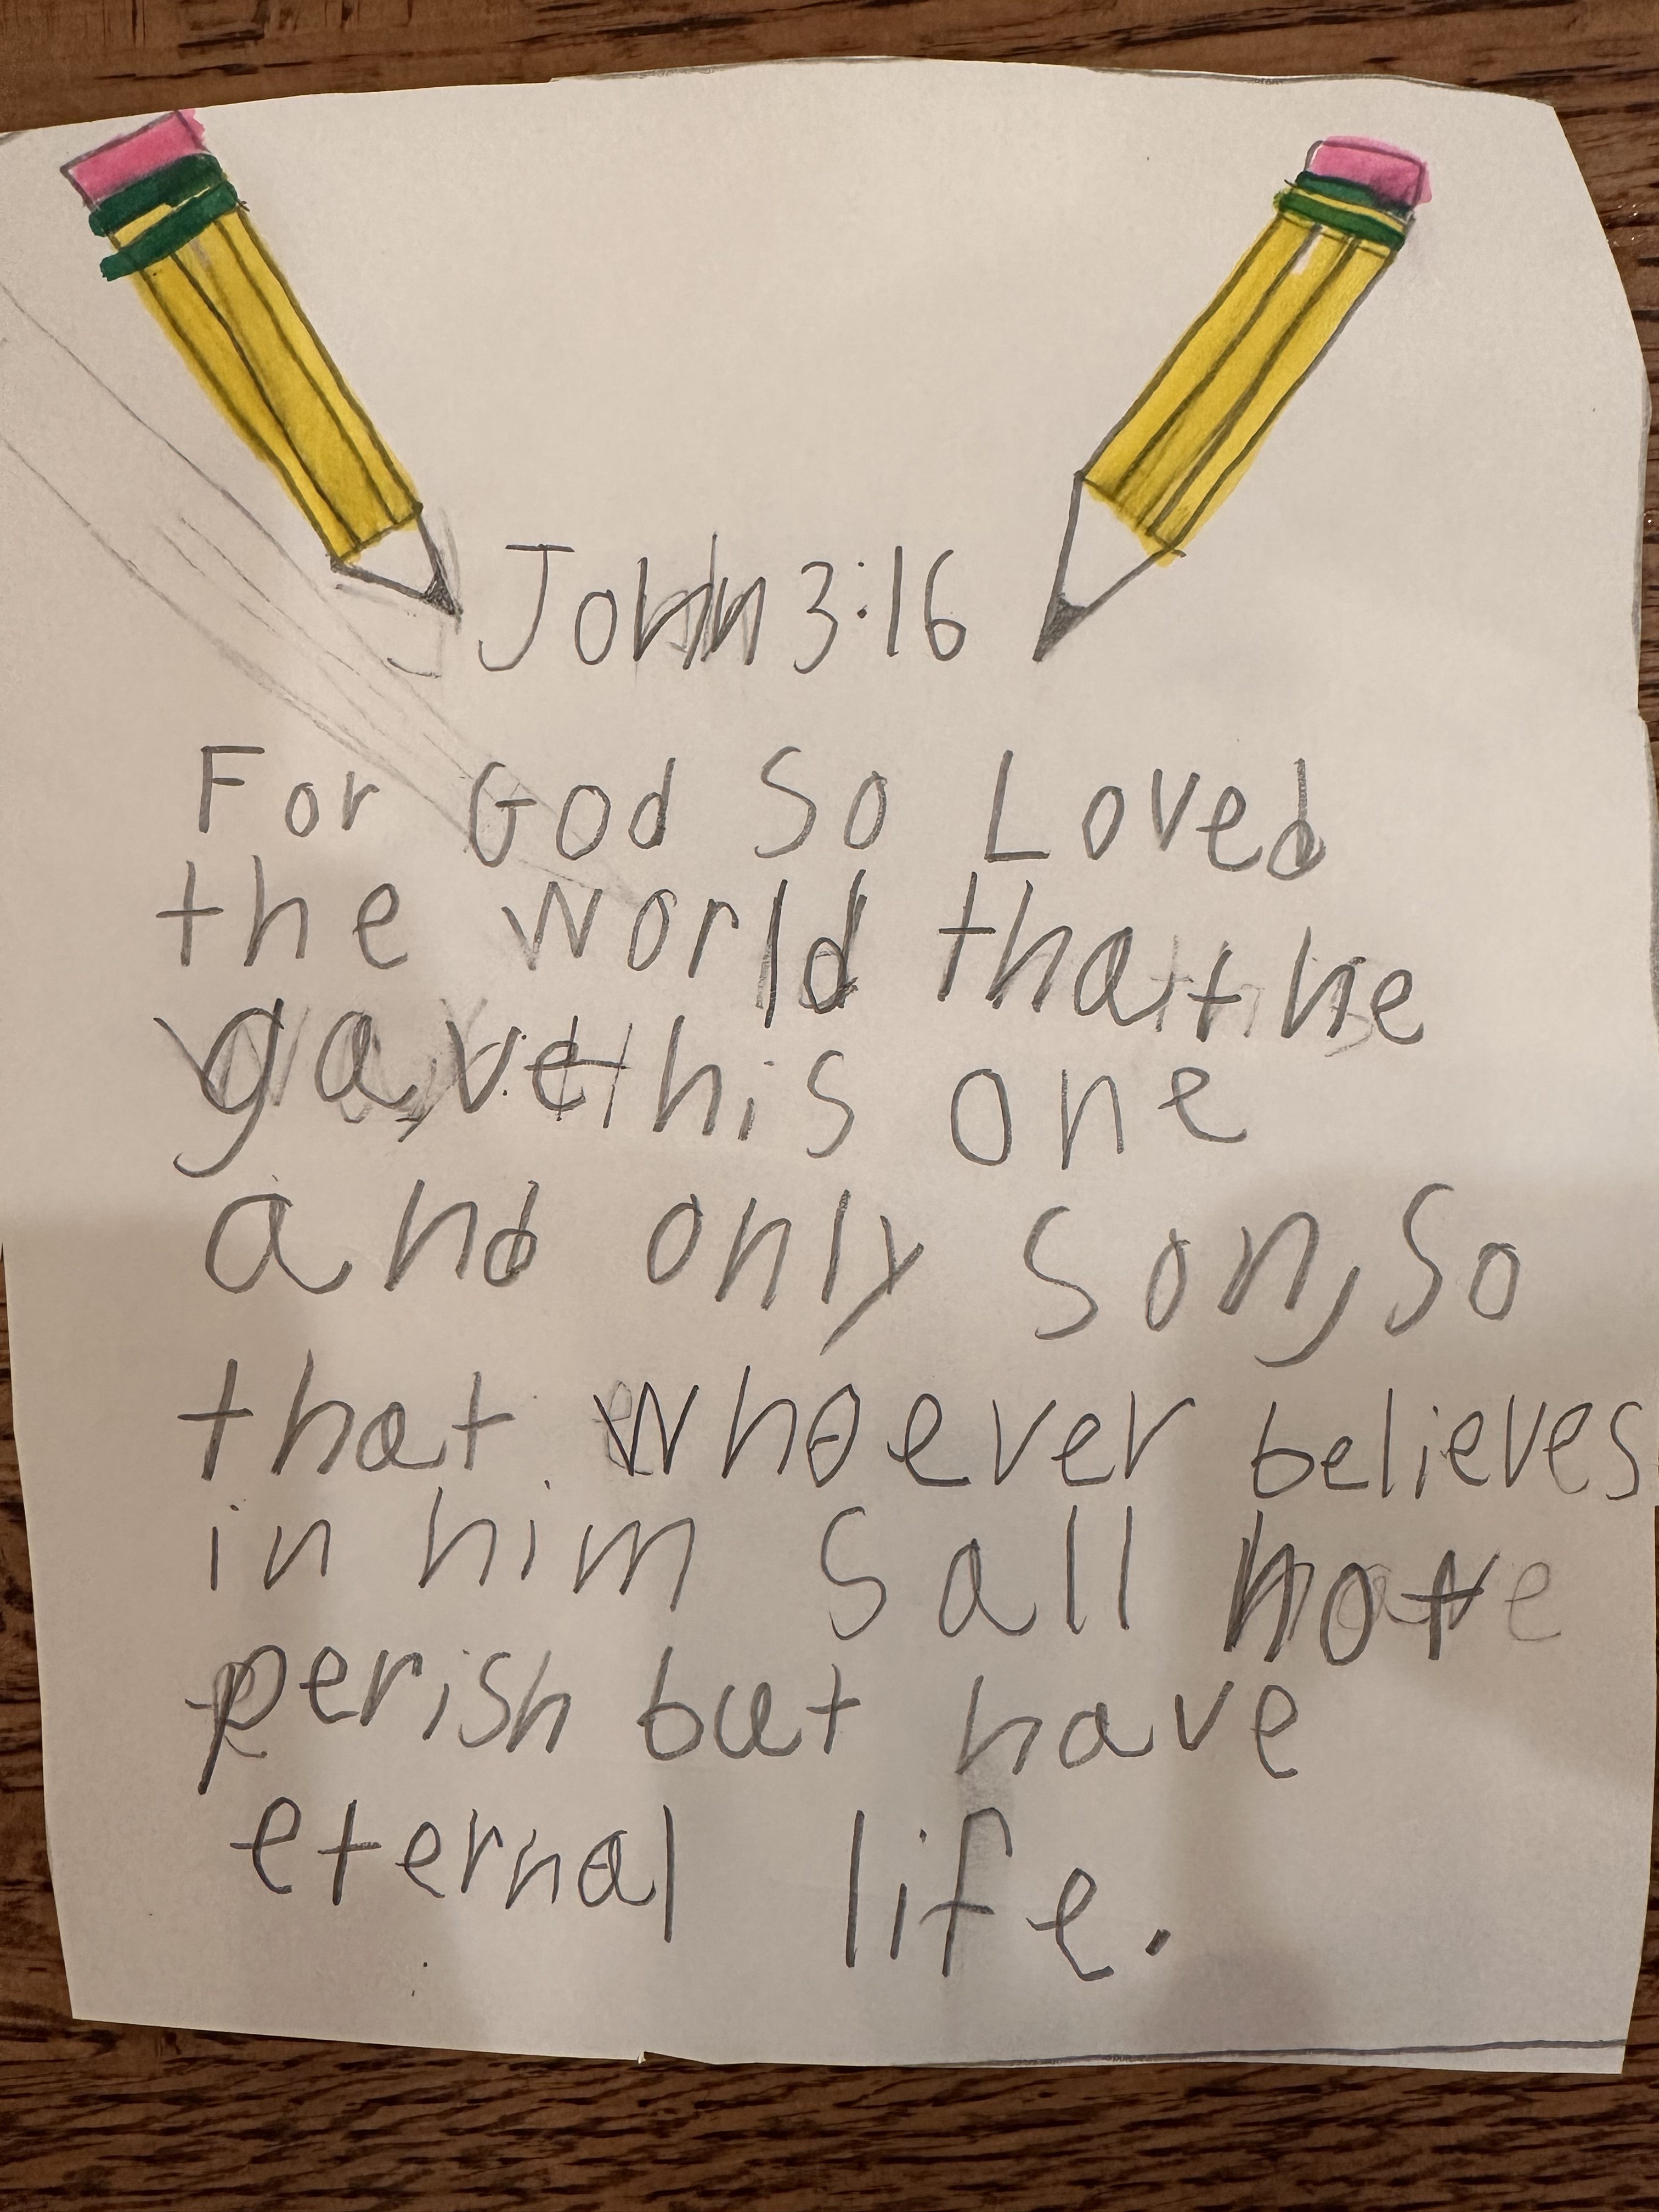 John 3:16
For God So Loved
the world that he
gave his one
and only Son, So
that whoever believes
in him Sall not
perish but have
eternal life.